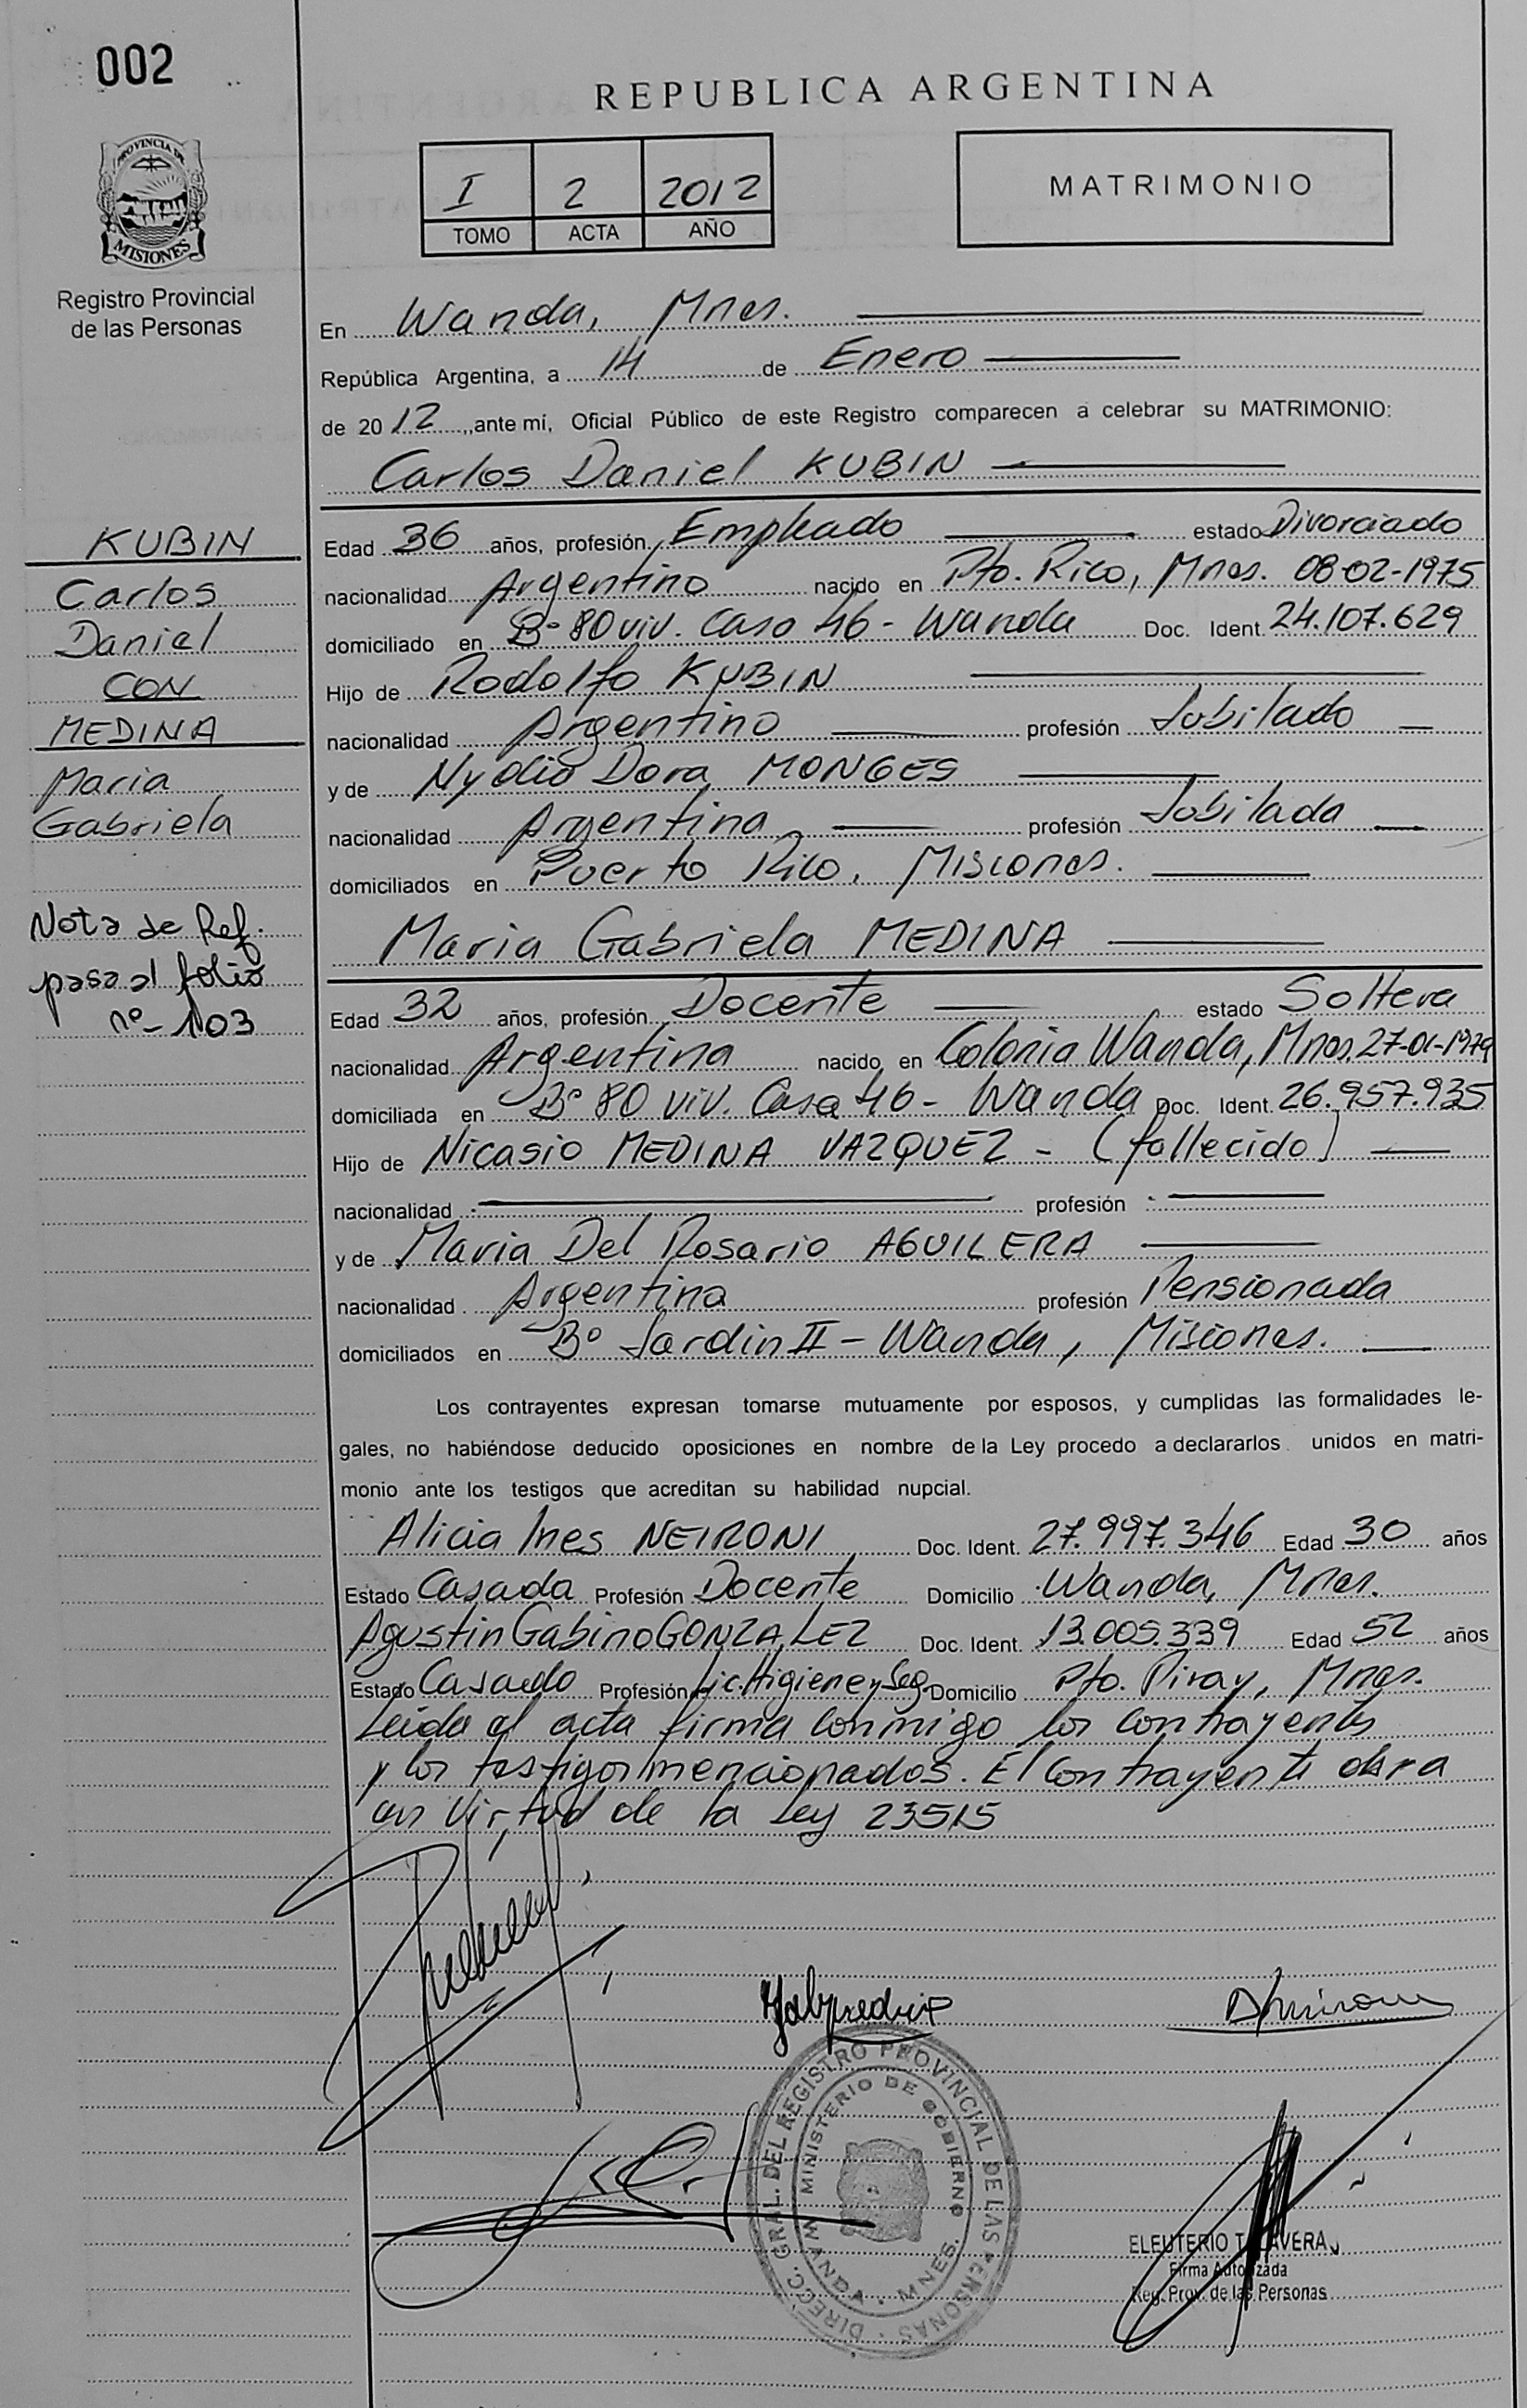 002
REPUBLICA ARGENTINA
PROVINCIA DE
MISIONES
Registro Provincial
de las Personas
I 2 2012
TOMO ACTA AÑO
MATRIMONIO
En Wanda, Mnes.
República Argentina, a 14 de Enero
de 2012, ante mí, Oficial Público de este Registro comparecen a celebrar su MATRIMONIO:
Carlos Daniel KUBIN
KUBIN
Carlos
Daniel
CON
MEDINA
Maria
Gabriela
Nota de Ref.
pasa al folio
nº- 103
Edad 36 años, profesión Empleado estado Divorciado
nacionalidad Argentino nacido en Pto. Rico, Mnes. 08-02-1975
domiciliado en Bº 80 viv. Casa 46 - Wanda Doc. Ident. 24.107.629
Hijo de Rodolfo KUBIN
nacionalidad Argentino profesión Jubilado
y de Nydia Dora MONGES
nacionalidad Argentina profesión Jubilada
domiciliados en Puerto Rico, Misiones.
Maria Gabriela MEDINA
Edad 32 años, profesión Docente estado Soltera
nacionalidad Argentina nacido en Colonia Wanda, Mnes. 27-01-1979
domiciliada en Bº 80 viv. Casa 46 - Wanda Doc. Ident. 26.957.935
Hijo de Nicasio MEDINA VAZQUEZ - (fallecido)
nacionalidad profesión
y de Maria Del Rosario AGUILERA
nacionalidad Argentina profesión Pensionada
domiciliados en Bº Jardin II - Wanda, Misiones.
Los contrayentes expresan tomarse mutuamente por esposos, y cumplidas las formalidades le-
gales, no habiéndose deducido oposiciones en nombre de la Ley procedo a declararlos unidos en matri-
monio ante los testigos que acreditan su habilidad nupcial.
Alicia Ines NEIRONI Doc. Ident. 27.997.346 Edad 30 años
Estado Casada Profesión Docente Domicilio Wanda, Mnes.
Agustin Gabino GONZALEZ Doc. Ident. 13.005.339 Edad 52 años
Estado Casado Profesión Lic. Higiene y Seg. Domicilio Pto. Piray, Mnes.
Leida el acta firma conmigo los contrayentes
y los testigos mencionados. El contrayente obra
en virtud de la ley 23515
DIRECC. GRAL. DEL REGISTRO PROVINCIAL DE LAS PERSONAS
MINISTERIO DE GOBIERNO
WANDA - MNES.
ELEUTERIO TALAVERA
Firma Autorizada
Reg. Prov. de las Personas